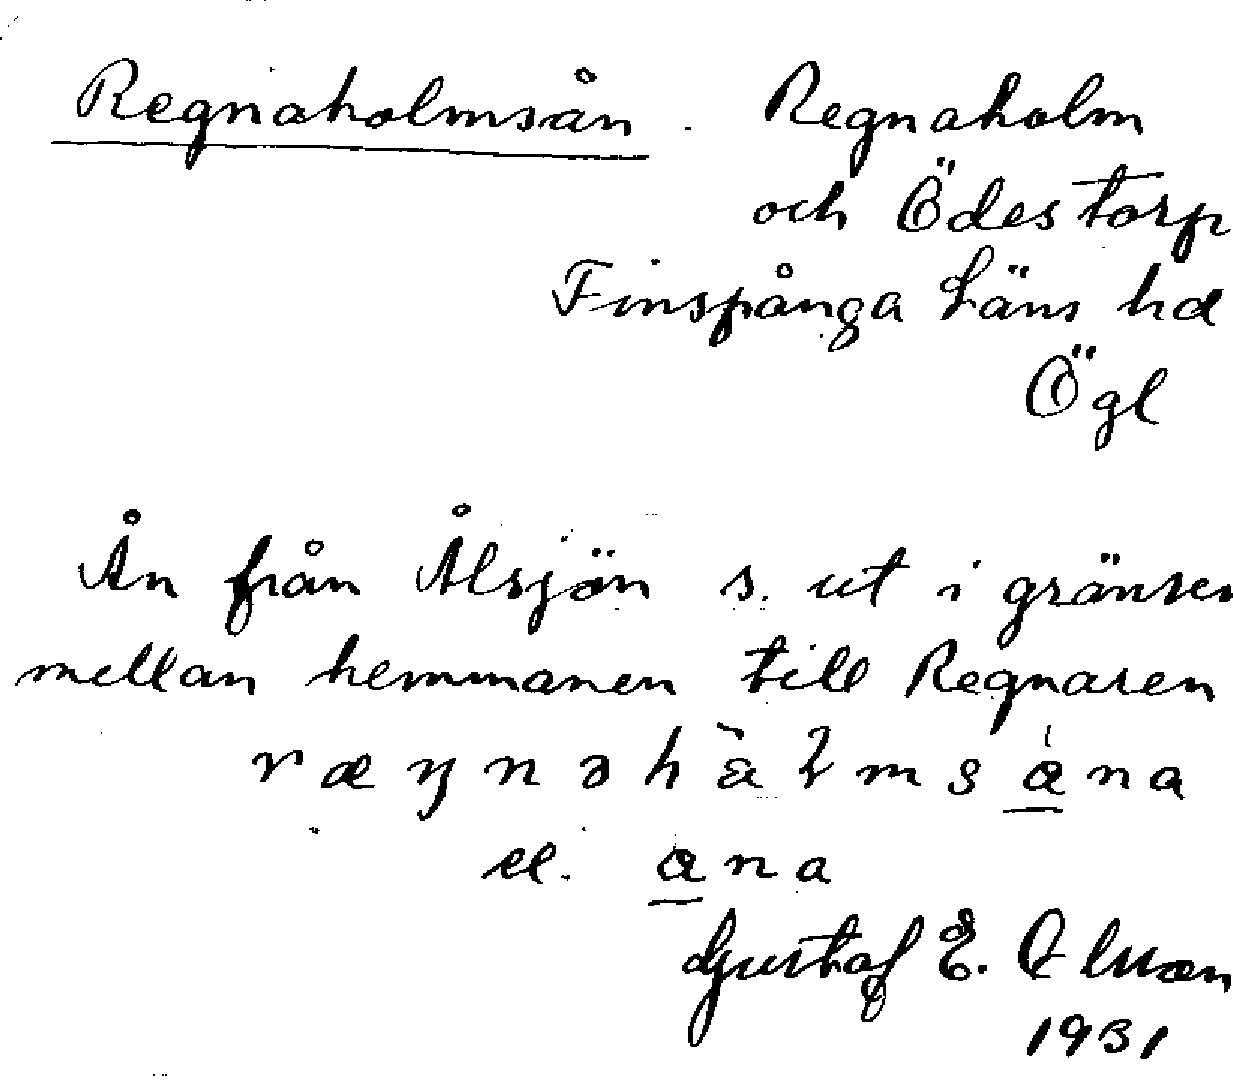 Regnaholmsån. Regnaholm
och Ödestorp
Finspånga Läns hd
Ögl
Ån från Ålsjön s. ut i gränsen
mellan hemmanen till Regnaren
el.
Gustaf E. Olsson
1931